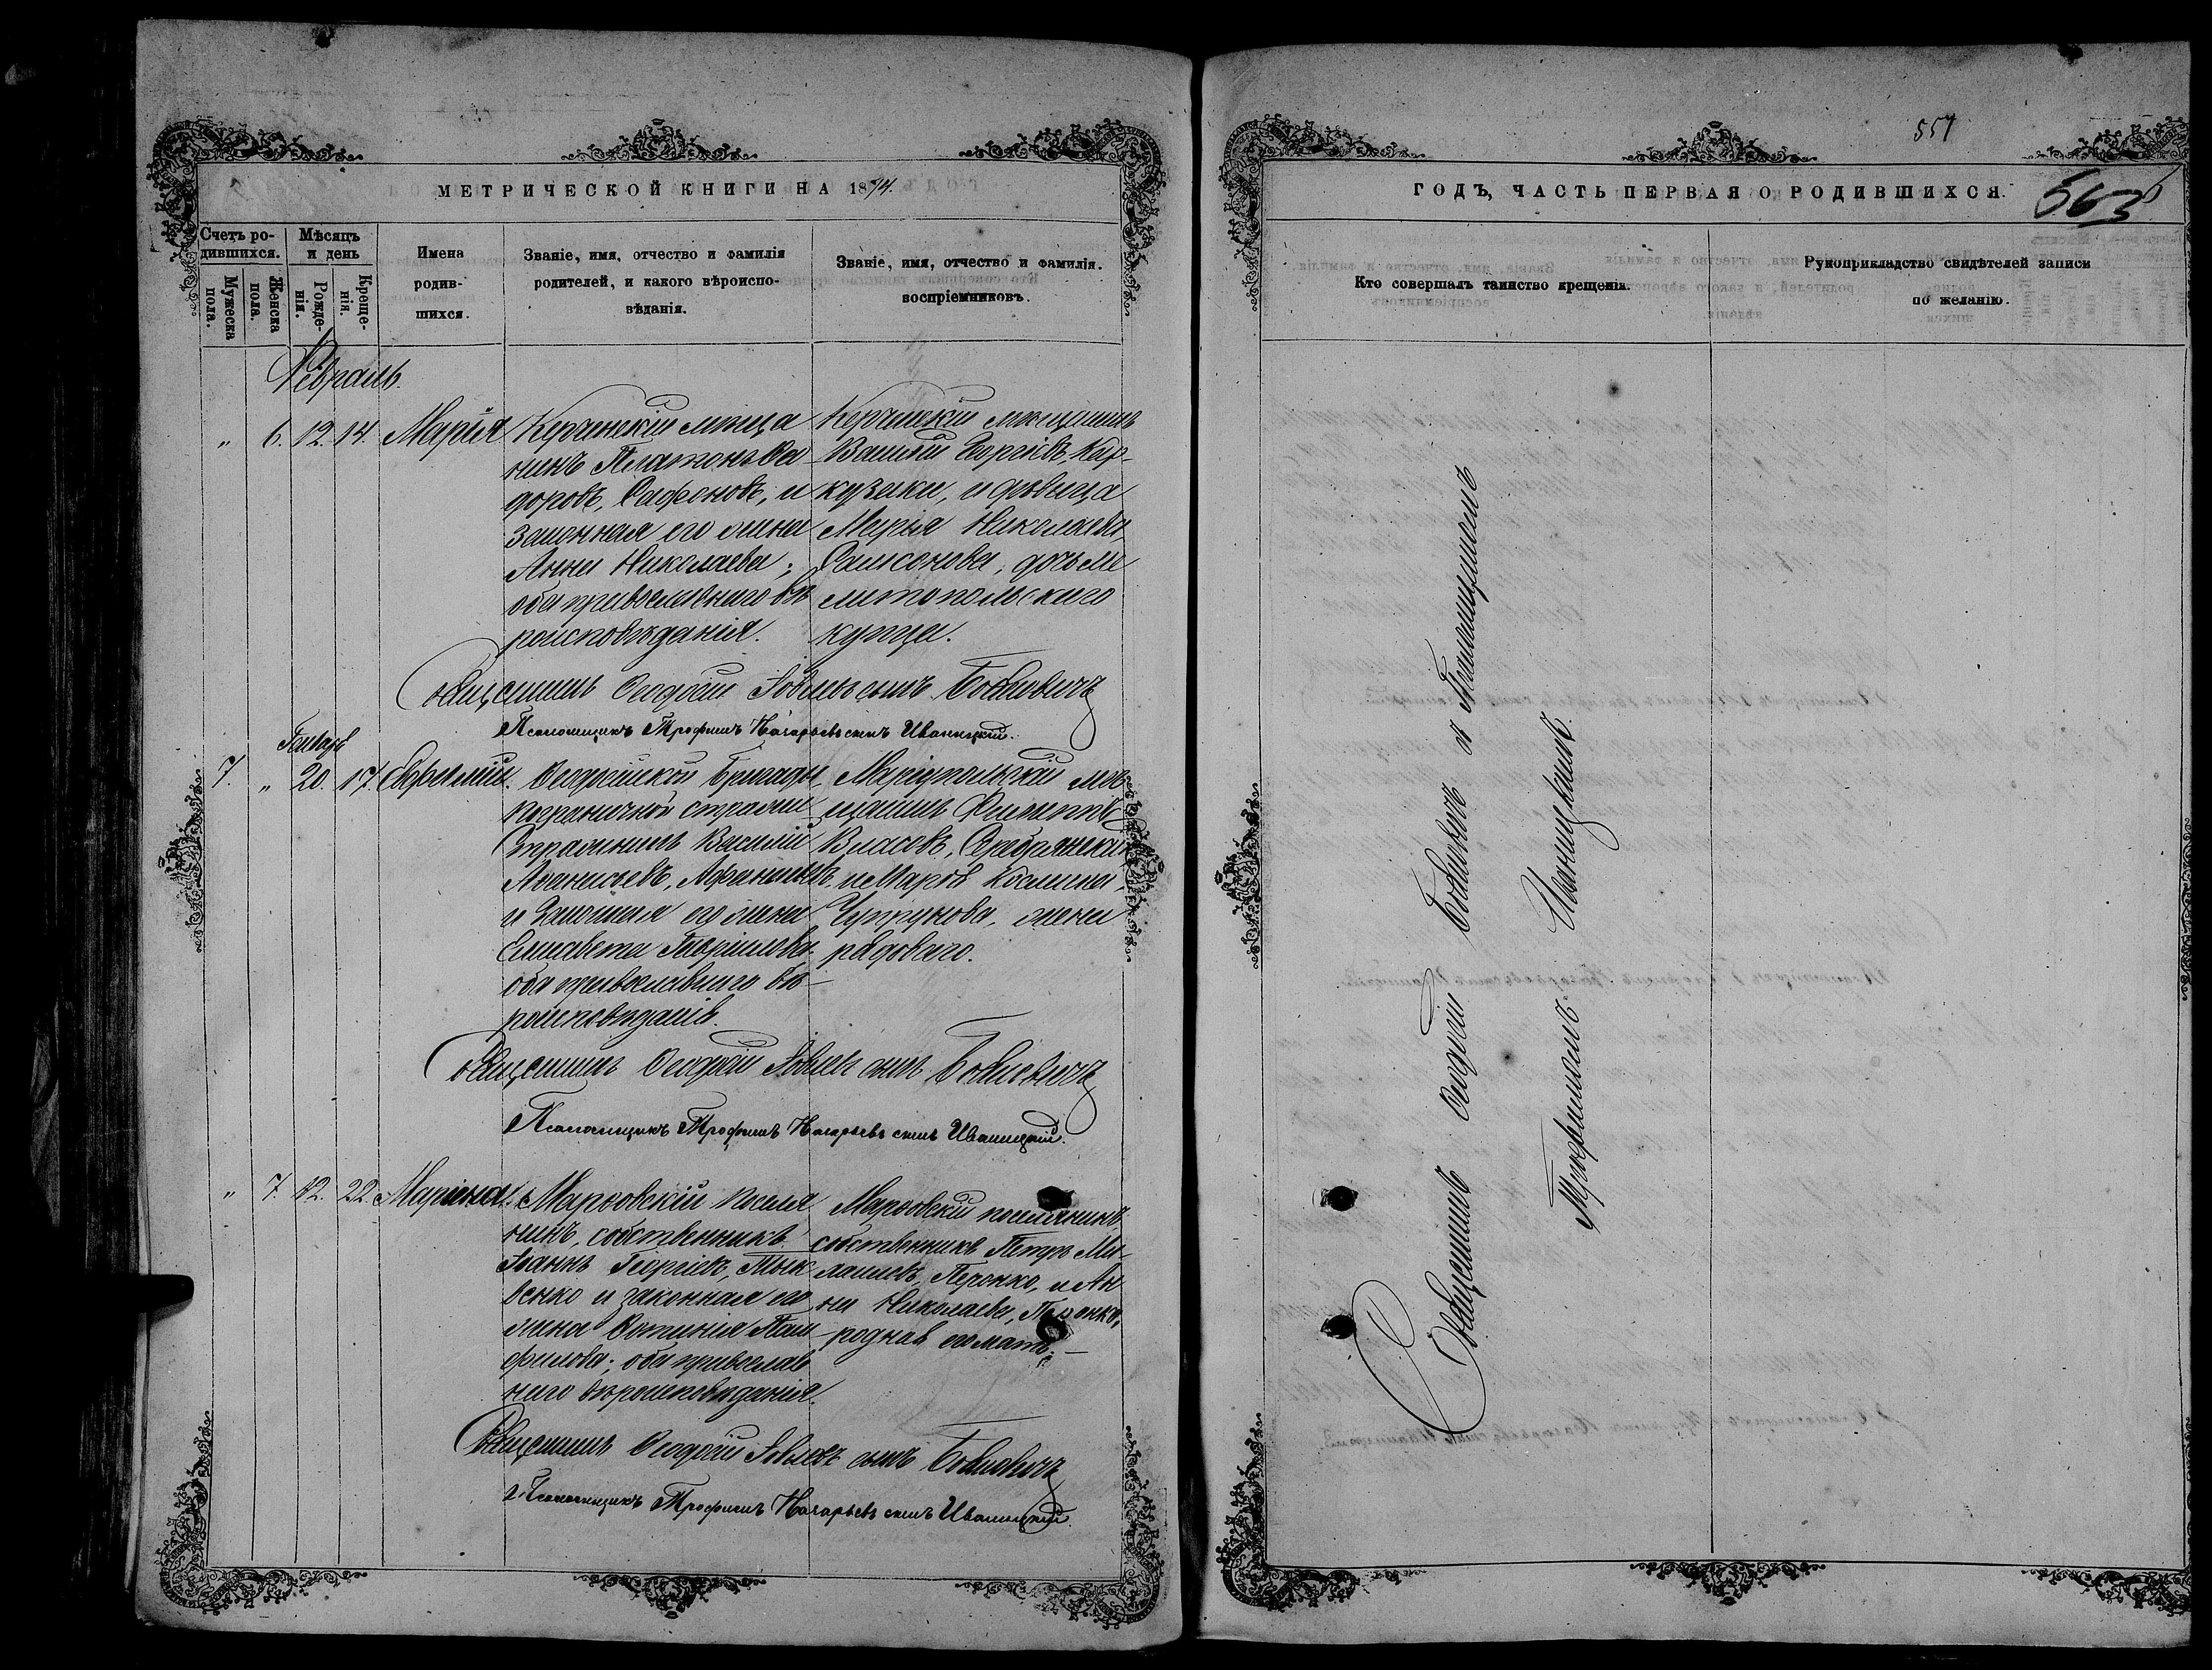 МЕТРИЧЕСКОЙ КНИГИ НА 1874.
Счетъ ро-
дившихся.
Мужеска
пола.
Женска
пола.
Мѣсяцъ
и день
Рожде-
нія.
Креще-
нія.
Имена
родив-
шихся.
Званіе, имя, отчество и фамилія
родителей, и какого вѣроиспо-
вѣданія.
Званіе, имя, отчество и фамилія.
воспріемниковъ.
Февраль.
" 6. 12. 14. Марія
Керченскій мѣща
нинъ Платонъ Ѳе-
доровъ, Сафоновъ, и
законная его жена
Анна Николаева;
оба православнаго вѣ
роисповѣданія.
Керченскій мѣщанинъ
Василій Георгіевъ, Кар-
кузаки, и дѣвица
Марія Николаева,
Самсонова, дочь Ме
литопольскаго
купца.
Священникъ Ѳеодосій Іовлевъ сынъ
Псаломщикъ Трофимъ Назарьевъ сынъ Иваницкій.
Январь
7. " 20. 17. Евфимій.
Ѳеодосійской бригады
пограничной стражи
стражникъ Василій
Аѳанасьевъ,
и законная его жена
Елисавета Гавріилова
оба православнаго вѣ-
роисповѣданія.
Маріупольскій мѣ
щанинъ
Власовъ, Серебрянскій
и Козмина,
жена
рядоваго.
Священникъ Ѳеодосій Іовлевъ сынъ
Псаломщикъ Трофимъ Назарьевъ сынъ Иваницкій.
" 7. 12. 22. Маріона.
Марьовскій поселя
нинъ, собственникъ
Іоаннъ Георгіевъ,
и законная его
жена Фотинія Пам-
филова; оба православ
наго вѣроисповѣданія.
Марьовскій поселянинъ
собственникъ Петръ Ми-
хаиловъ, и Ан
на Николаева,
родная его мать.
Священникъ Ѳеодосій Іовлевъ сынъ
Псаломщикъ Трофимъ Назарьевъ сынъ Иваницкій.
557
ГОДЪ, ЧАСТЬ ПЕРВАЯ О РОДИВШИХСЯ.
563
Кто совершалъ таинство крещенія.
Рукоприкладство свидѣтелей записи
по желанію.
Священникъ Ѳеодосій съ Псаломщикомъ
Трофимомъ Иваницкимъ.